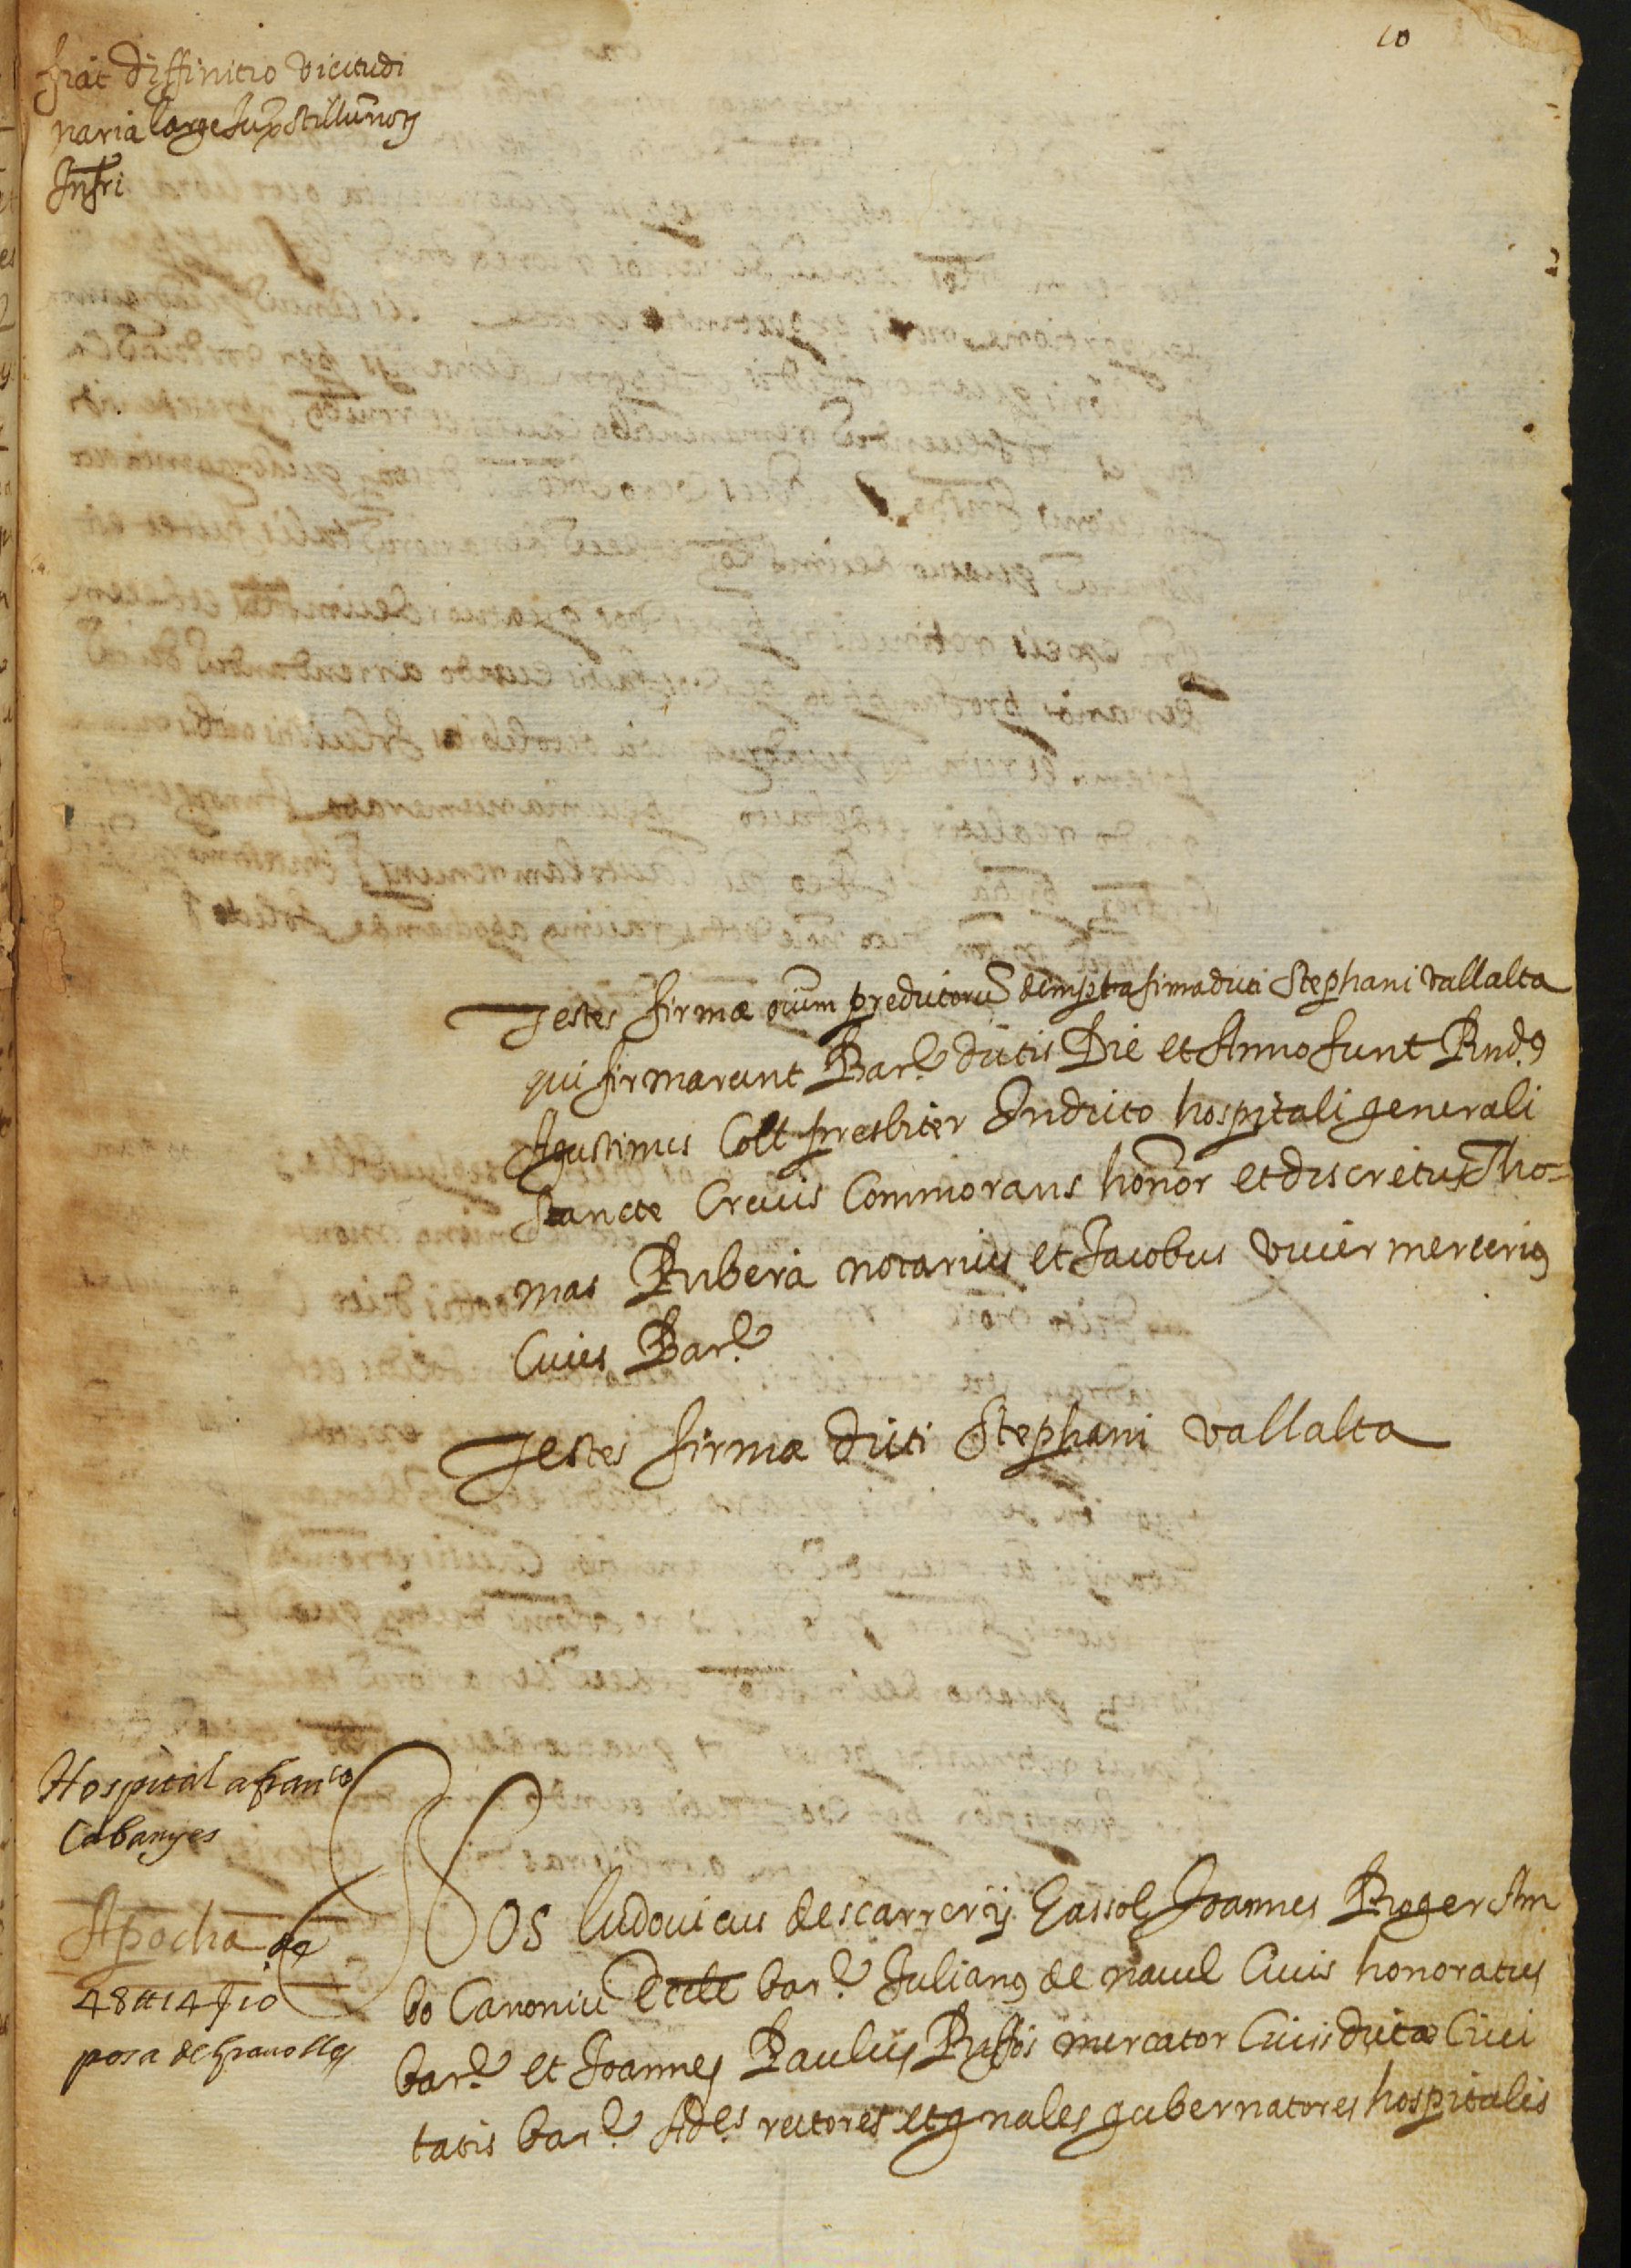 10
fiat diffinitio vicitudi
naria large
Testes firmæ oium predictoru dempta firma dicti Stephani Vallalta
qui firmarunt Barᵉ dictis Die et Anno sunt Rnd.9
Agustinus Coll presbiter In dicto hospitali generali
Sancte Crucis Commorans honor et discretus Tho=
mas Rubera notarius et Jacobus vivier mercerius
Civis Barᵉ
Testes firmæ dicti Stephani Vallalta
Hospital a franco
Cabanyes
Apocha de
48 ₶ 14 § 10
posa de Granollɇs
NOS Ludovicus descarrerij Gassol Joannes Roger Am
bo Canonici Eccle barᵉ Julianus de navel Civis honoratus
barᵉ et Joannes Paulus Riffos mercator Civis dictæ Civi
tatis barᵉ Ad.es rectores et gnales gubernatores hospitalis